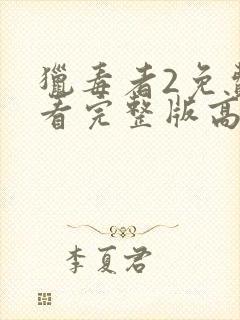 獵毒者2免費
看完整版高
李夏君